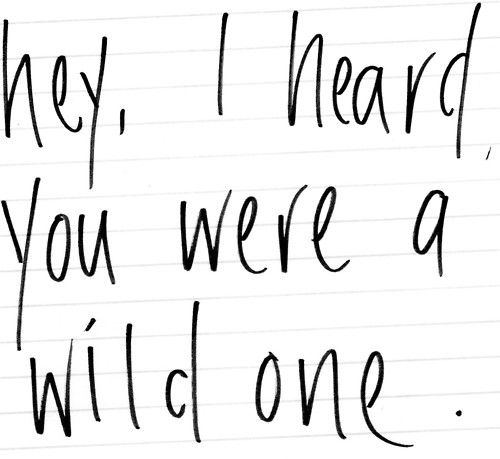 hey, I heard,
you were a
wild one.